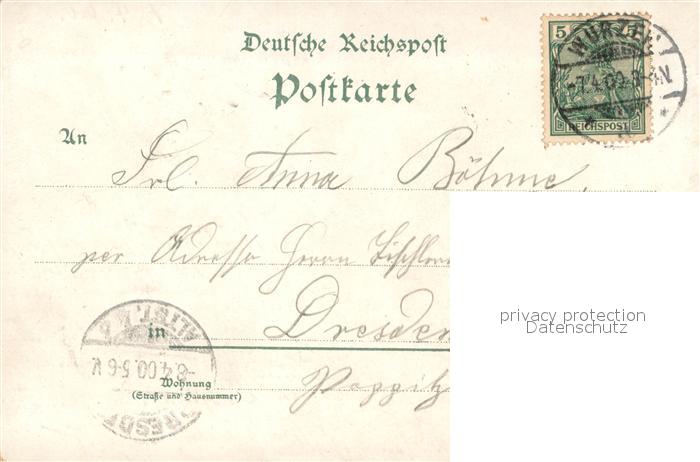 Deutsche Reichspost
Postkarte
5
REICHSPOST
WURZEN
-7.4.00.
An
Frl. Anna Böhme,
per Adresse Herrn
privacy protection
Datenschutz
in Dresden
ALTST.
-8.4.00.5-6V.
DRESDEN
Wohnung
(Straße und Hausnummer)